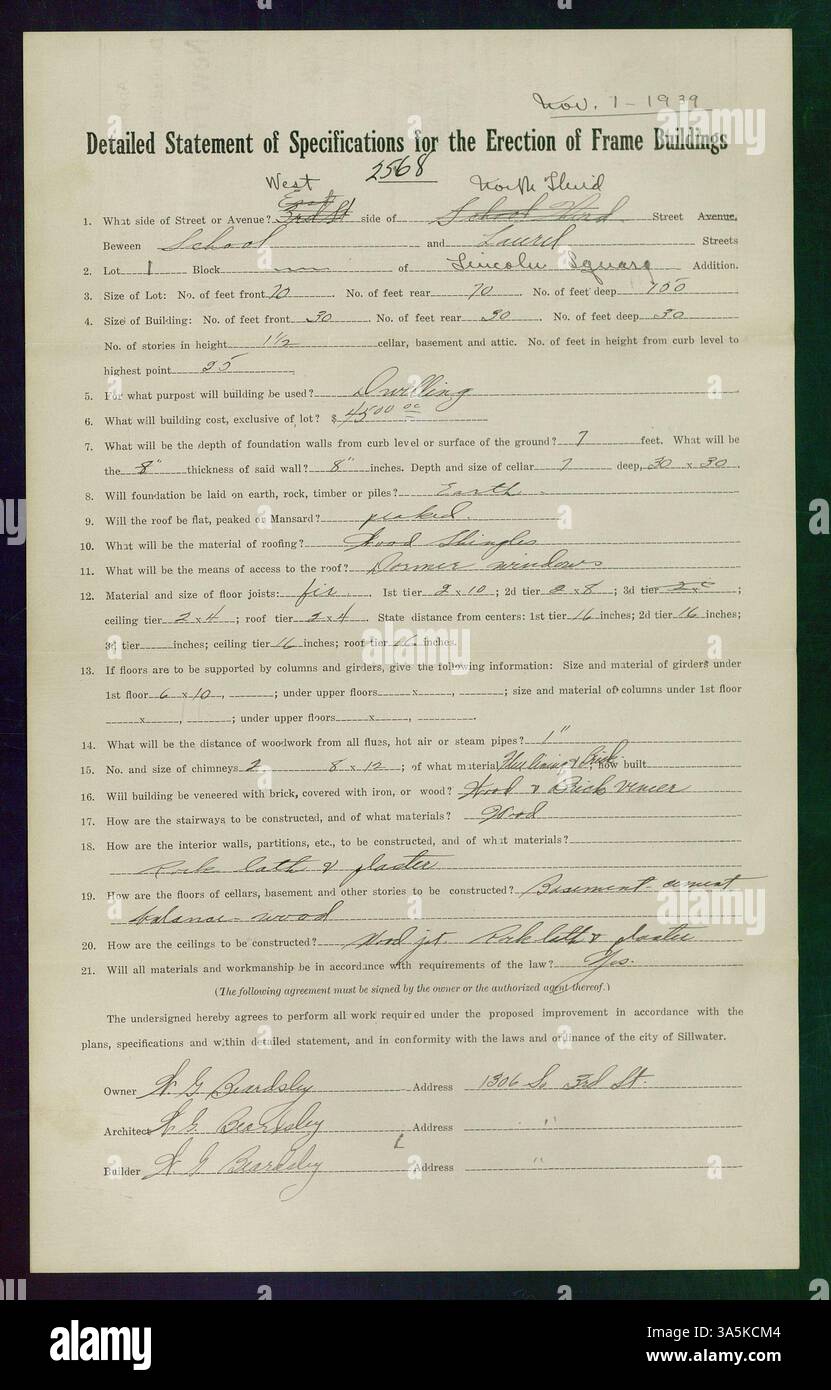 Nov. 1 - 1939
Detailed Statement of Specifications for the Erection of Frame Buildings
2568
West North Third
East
1. What side of Street or Avenue? 3rd St side of School Third Street Avenue,
Beween School and Laurel Streets
2. Lot 1 Block of Lincoln Square Addition.
3. Size of Lot: No. of feet front 70. No. of feet rear 70. No. of feet deep 150
4. Size of Building: No. of feet front 30. No. of feet rear 30. No. of feet deep 30
No. of stories in height 1 1/2 cellar, basement and attic. No. of feet in height from curb level to
highest point 25.
5. For what purpost will building be used? Dwelling
6. What will building cost, exclusive of lot? $ 4500 00
7. What will be the depth of foundation walls from curb level or surface of the ground? 7 feet. What will be
the 8" thickness of said wall? 8" inches. Depth and size of cellar 7 deep, 30 x 30.
8. Will foundation be laid on earth, rock, timber or piles? Earth
9. Will the roof be flat, peaked or Mansard? peaked.
10. What will be the material of roofing? Wood Shingles
11. What will be the means of access to the roof? Dormer windows
12. Material and size of floor joists: fir. 1st tier 2 x 10; 2d tier 2 x 8; 3d tier 2 x;
ceiling tier 2 x 4; roof tier 2 x 4. State distance from centers: 1st tier 16 inches; 2d tier 16 inches;
3d tier inches; ceiling tier 16 inches; roof tier 16 inches.
13. If floors are to be supported by columns and girders, give the following information: Size and material of girders under
1st floor 6 x 10, ; under upper floors x, ; size and material of columns under 1st floor
x, ; under upper floors x, .
14. What will be the distance of woodwork from all flues, hot air or steam pipes? 1"
15. No. and size of chimneys 2 8 x 12; of what material Flue lining & Brick; how built
16. Will building be veneered with brick, covered with iron, or wood? Wood & Brick veneer
17. How are the stairways to be constructed, and of what materials? Wood
18. How are the interior walls, partitions, etc., to be constructed, and of what materials?
Rock lath & plaster
19. How are the floors of cellars, basement and other stories to be constructed? Basement - cement
balance - wood
20. How are the ceilings to be constructed? Wood jst Rock lath & plaster
21. Will all materials and workmanship be in accordance with requirements of the law? Yes.
(The following agreement must be signed by the owner or the authorized agent thereof.)
The undersigned hereby agrees to perform all work required under the proposed improvement in accordance with the
plans, specifications and within detailed statement, and in conformity with the laws and ordinance of the city of Sillwater.
Owner W. G Beardsley Address 1306 So 3rd St.
Architect W. G. Beardsley Address " "
Builder W G Beardsley Address "
alamy
Image ID: 3A5KCM4
www.alamy.com